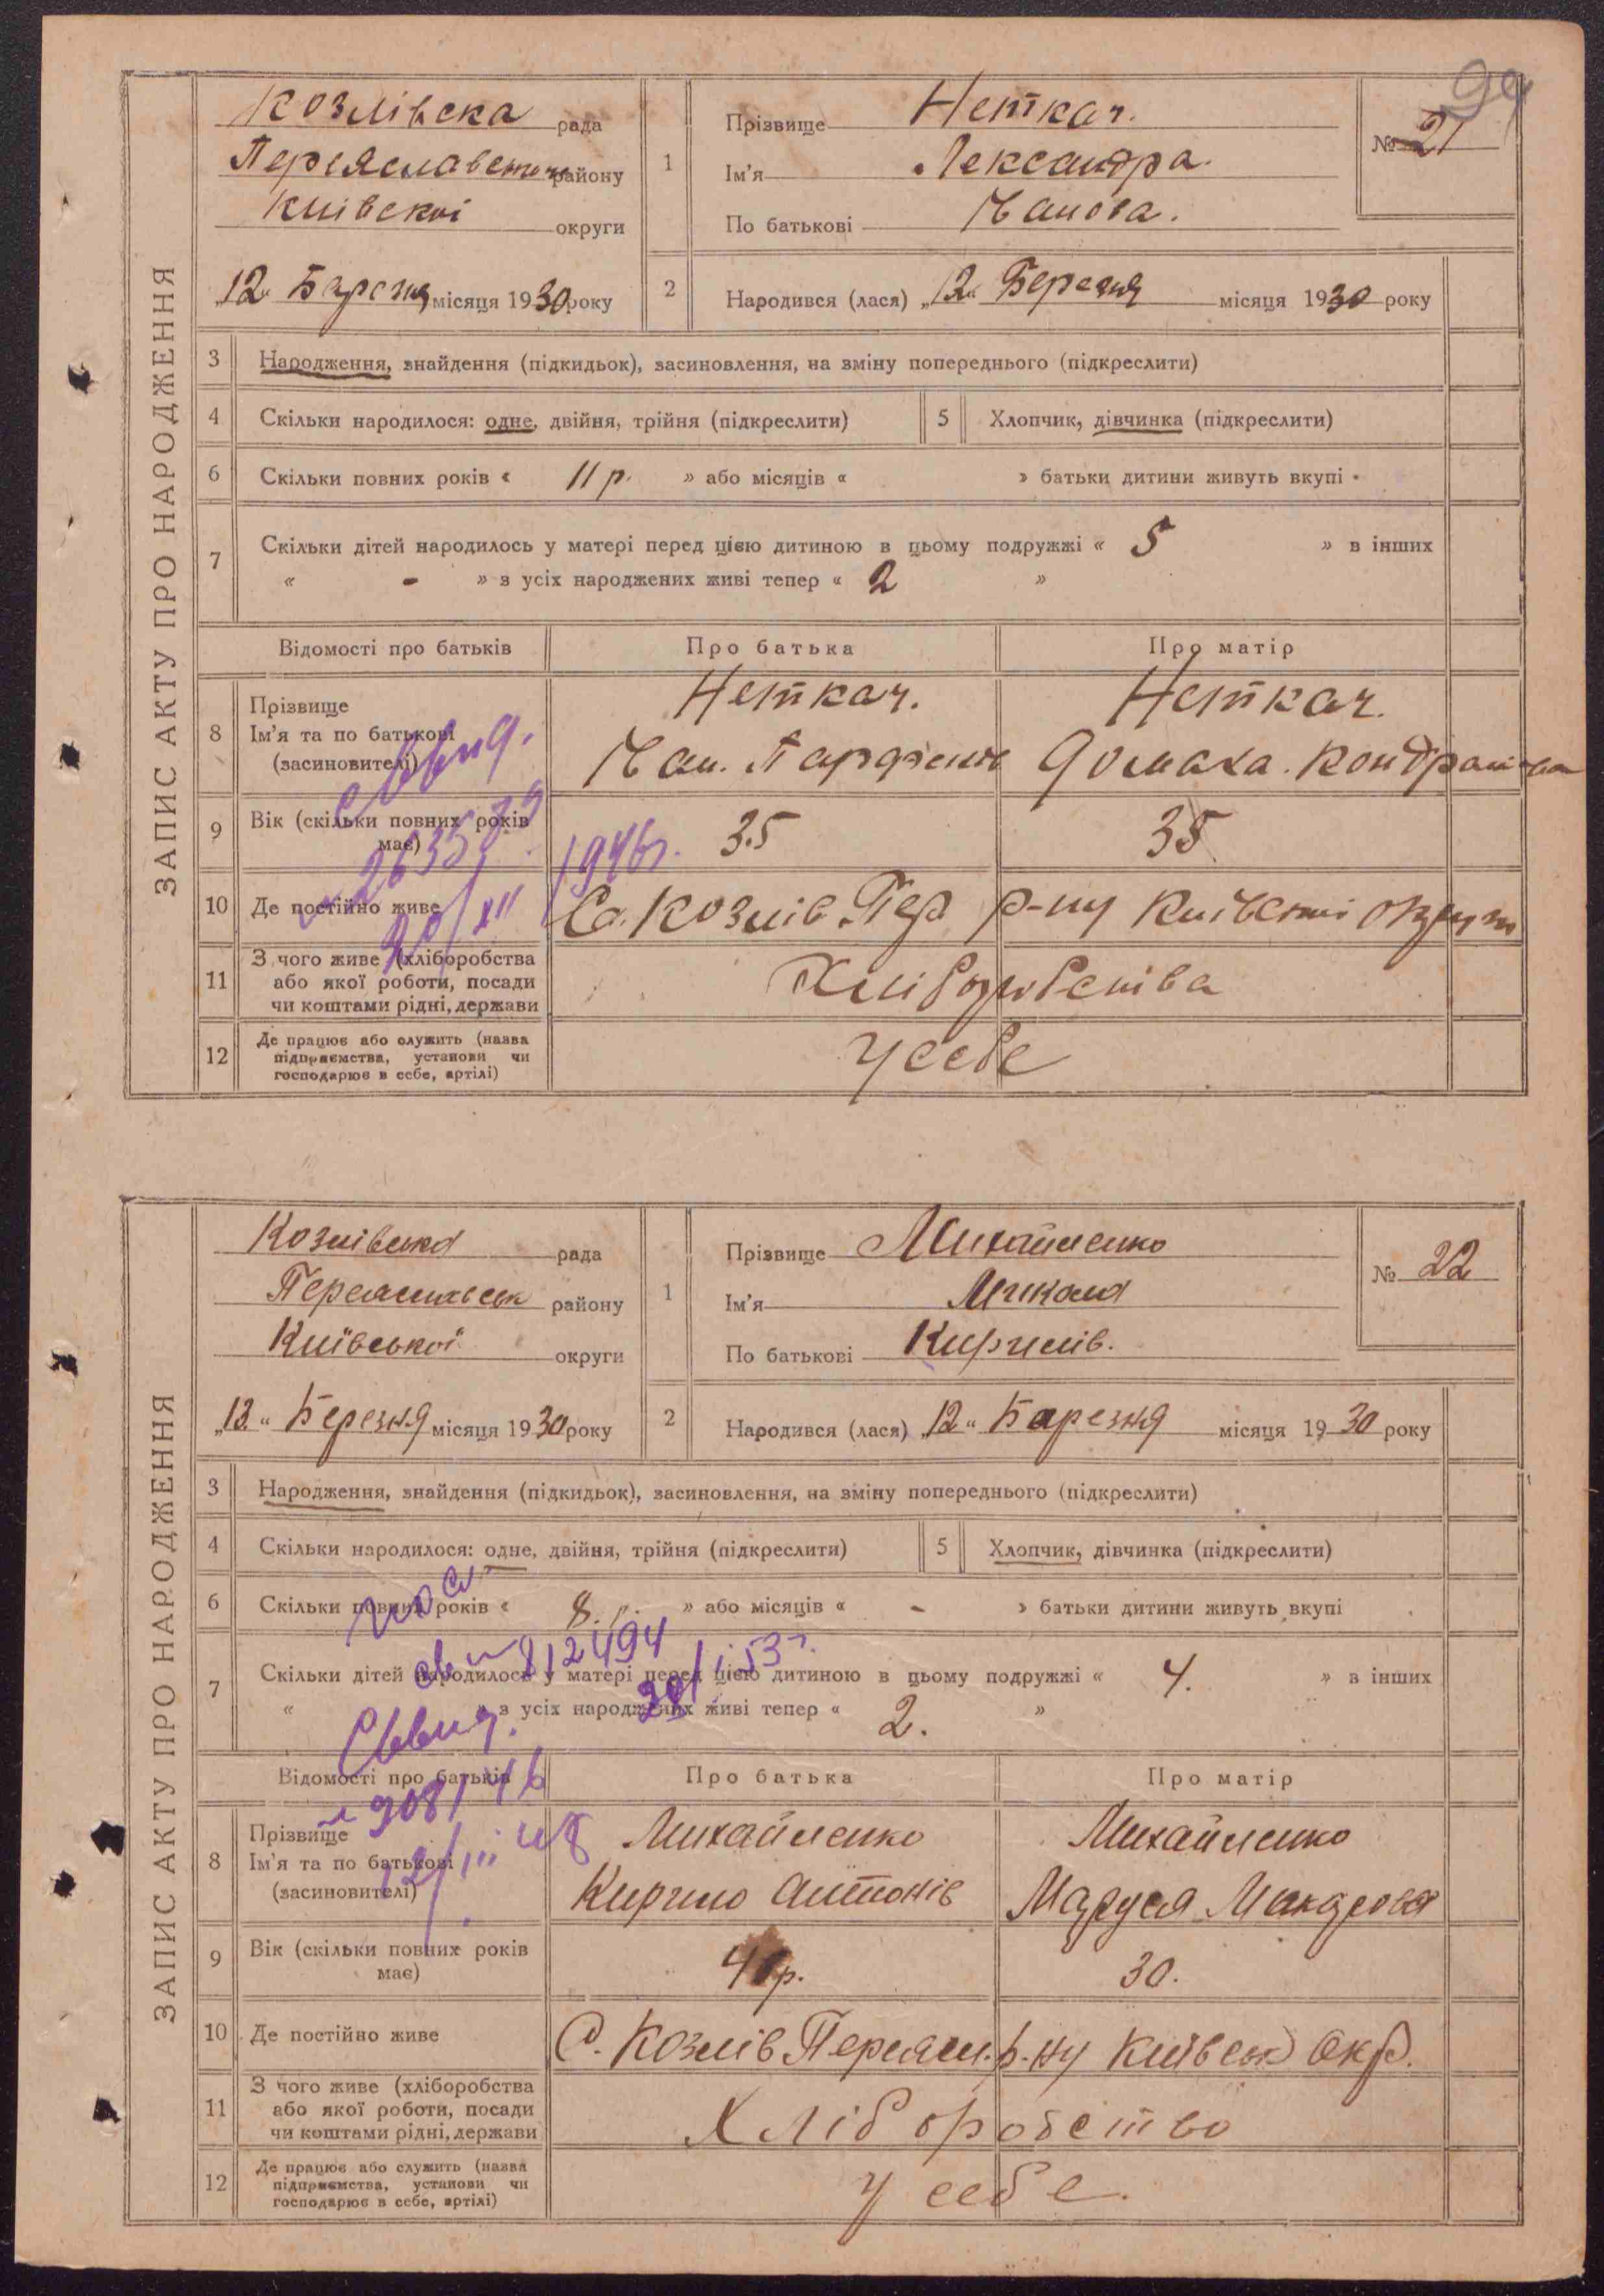 99
ЗАПИС АКТУ ПРО НАРОДЖЕННЯ
Козлівска рада
Переяславського району
Київскої округи
„12“ Березня місяця 1930 року
1 Прізвище Неткач.
Ім'я Лександра.
По батькові Іванова.
№ 21
2 Народився (лася) „12“ Березня місяця 1930 року
3 Народження, знайдення (підкидьок), засиновлення, на зміну попереднього (підкреслити)
4 Скільки народилося: одне, двійня, трійня (підкреслити) 5 Хлопчик, дівчинка (підкреслити)
6 Скільки повних років « 11 р. » або місяців « » батьки дитини живуть вкупі
7 Скільки дітей народилось у матері перед цією дитиною в цьому подружжі « 5 » в інших
« - » з усіх народжених живі тепер « 2 »
Відомості про батьків Про батька Про матір
8 Прізвище
Ім'я та по батькові
(засиновителі)
Неткач. Неткач.
Іван. Домаха. Кондратова
9 Вік (скільки повних років
має)
35 35
1946г.
10 Де постійно живе Со. Козлів Пер р-ну Київскої округи
11 З чого живе (хліборобства
або якої роботи, посади
чи коштами рідні, держави
Хліборобства
12 Де працює або служить (назва
підприємства, установи чи
господарює в себе, артілі)
У себе
ЗАПИС АКТУ ПРО НАРОДЖЕННЯ
Козлівська рада
Переяславськ району
Київської округи
„12“ Березня місяця 1930 року
1 Прізвище Михайленко
Ім'я Микола
По батькові Кирилів.
№ 22
2 Народився (лася) „12“ Барезня місяця 1930 року
3 Народження, знайдення (підкидьок), засиновлення, на зміну попереднього (підкреслити)
4 Скільки народилося: одне, двійня, трійня (підкреслити) 5 Хлопчик, дівчинка (підкреслити)
6 Скільки повних років « 8. р. » або місяців « - » батьки дитини живуть вкупі
7 Скільки дітей народилось у матері перед цією дитиною в цьому подружжі « 4. » в інших
« » з усіх народжених живі тепер « 2. »
812494
53г.
Відомості про батьків Про батька Про матір
8 Прізвище
Ім'я та по батькові
(засиновителі)
Михайленко Михайленко
Кирило Антонів Маруся
9 Вік (скільки повних років
має)
р. 30.
10 Де постійно живе С. Козлів Переясл. р-ну Київськ Окр.
11 З чого живе (хліборобства
або якої роботи, посади
чи коштами рідні, держави
Хліборобство
12 Де працює або служить (назва
підприємства, установи чи
господарює в себе, артілі)
У себе.